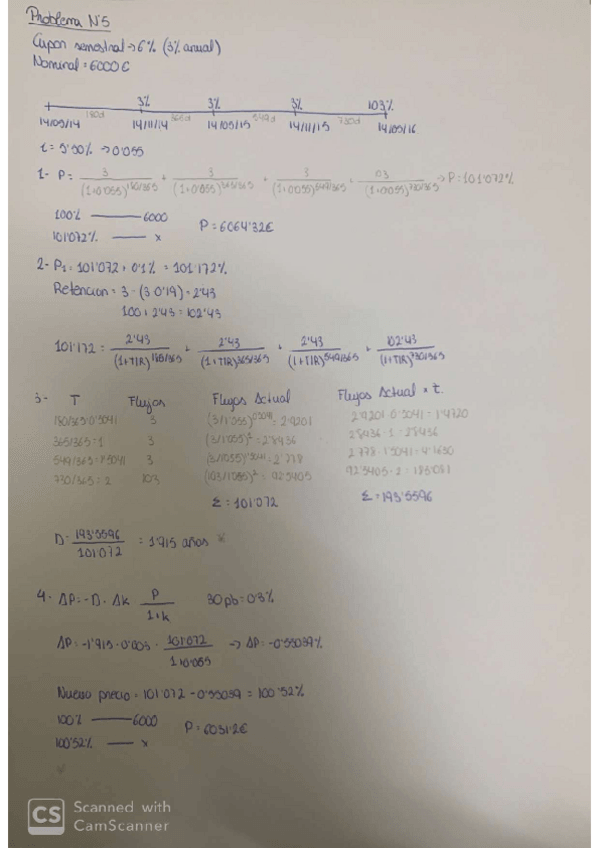 Problema Nº5
Cupon semestral → 6% (3% anual)
Nominal = 6000€
3% 3% 3% 103%
180d 365d 549d 730d
14/05/14 14/11/14 14/05/15 14/11/15 14/05/16
i = 5'50% → 0'055
1- P = 3/(1+0'055)^180/365 + 3/(1+0'055)^365/365 + 3/(1+0'055)^549/365 + 03/(1+0'055)^730/365 → P = 101'072%
100% —— 6000
101'072% —— x P = 6064'32€
2- P1 = 101'072 + 0'1% = 101'172%
Retencion = 3 - (3·0'19) = 2'43
100 + 2'43 = 102'43
101'172 = 2'43/(1+TIR)^180/365 + 2'43/(1+TIR)^365/365 + 2'43/(1+TIR)^549/365 + 102'43/(1+TIR)^730/365
3- T Flujos Flujos Actual Flujos Actual * t.
180/365=0'5041 3 (3/1'055)^0'5041 = 2'9201 2'9201·0'5041 = 1'4720
365/365=1 3 (3/1'055)^1 = 2'8436 2'8436·1 = 2'8436
549/365=1'5041 3 (3/1055)^1'5041 = 2'778 2'778·1'5041 = 4'1630
730/365=2 103 (103/1'055)^2 = 92'5405 92'5405·2 = 185'081
Σ = 101'072 Σ = 193'5596
D = 193'5596/101'072 = 1'915 años
4- ΔP = -D · Δk · P/1+k 30pb = 0'3%
ΔP = -1'915·0'003 · 101'072/1+0'055 → ΔP = -0'55039%
Nuevo precio = 101'072 - 0'55039 = 100'52%
100% —— 6000
100'52% —— x P = 6031'2€
CS Scanned with
CamScanner